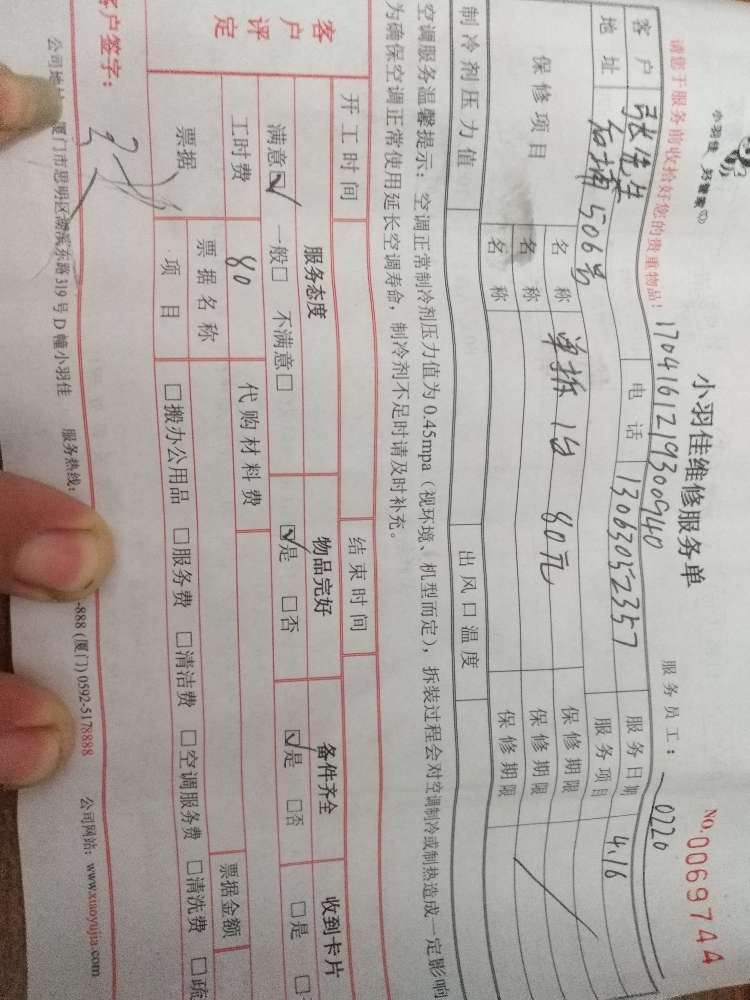 小羽佳 好管家
小羽佳维修服务单
NO.0069744
请您于服务前收拾好您的贵重物品!
1704161219300940
服务员工: 0220
客户 张先生 电话 13063052357 服务日期 4.16
地址 后埔506号 服务项目
保修项目 名称 单拆1台 80元 保修期限
名称 保修期限
名称 保修期限
制冷剂压力值 出风口温度
空调服务温馨提示: 空调正常制冷剂压力值为0.45mpa (视环境、机型而定), 拆装过程会对空调制冷或制热造成一定影响
为确保空调正常使用延长空调寿命, 制冷剂不足时请及时补充。
开工时间 结束时间
客户评定 服务态度 物品完好 备件齐全 收到卡片
满意☑ 一般□ 不满意□ ☑是 □否 ☑是 □否 □是
工时费 80 代购材料费 票据金额
票据 票据名称
项目 □搬办公用品 □服务费 □清洁费 □空调服务费 □清洗费 □疏
客户签字:
公司地址 厦门市思明区湖滨东路319号D幢小羽佳 服务热线: -888 (厦门) 0592-5178888 公司网站: www.xiaoyujia.com